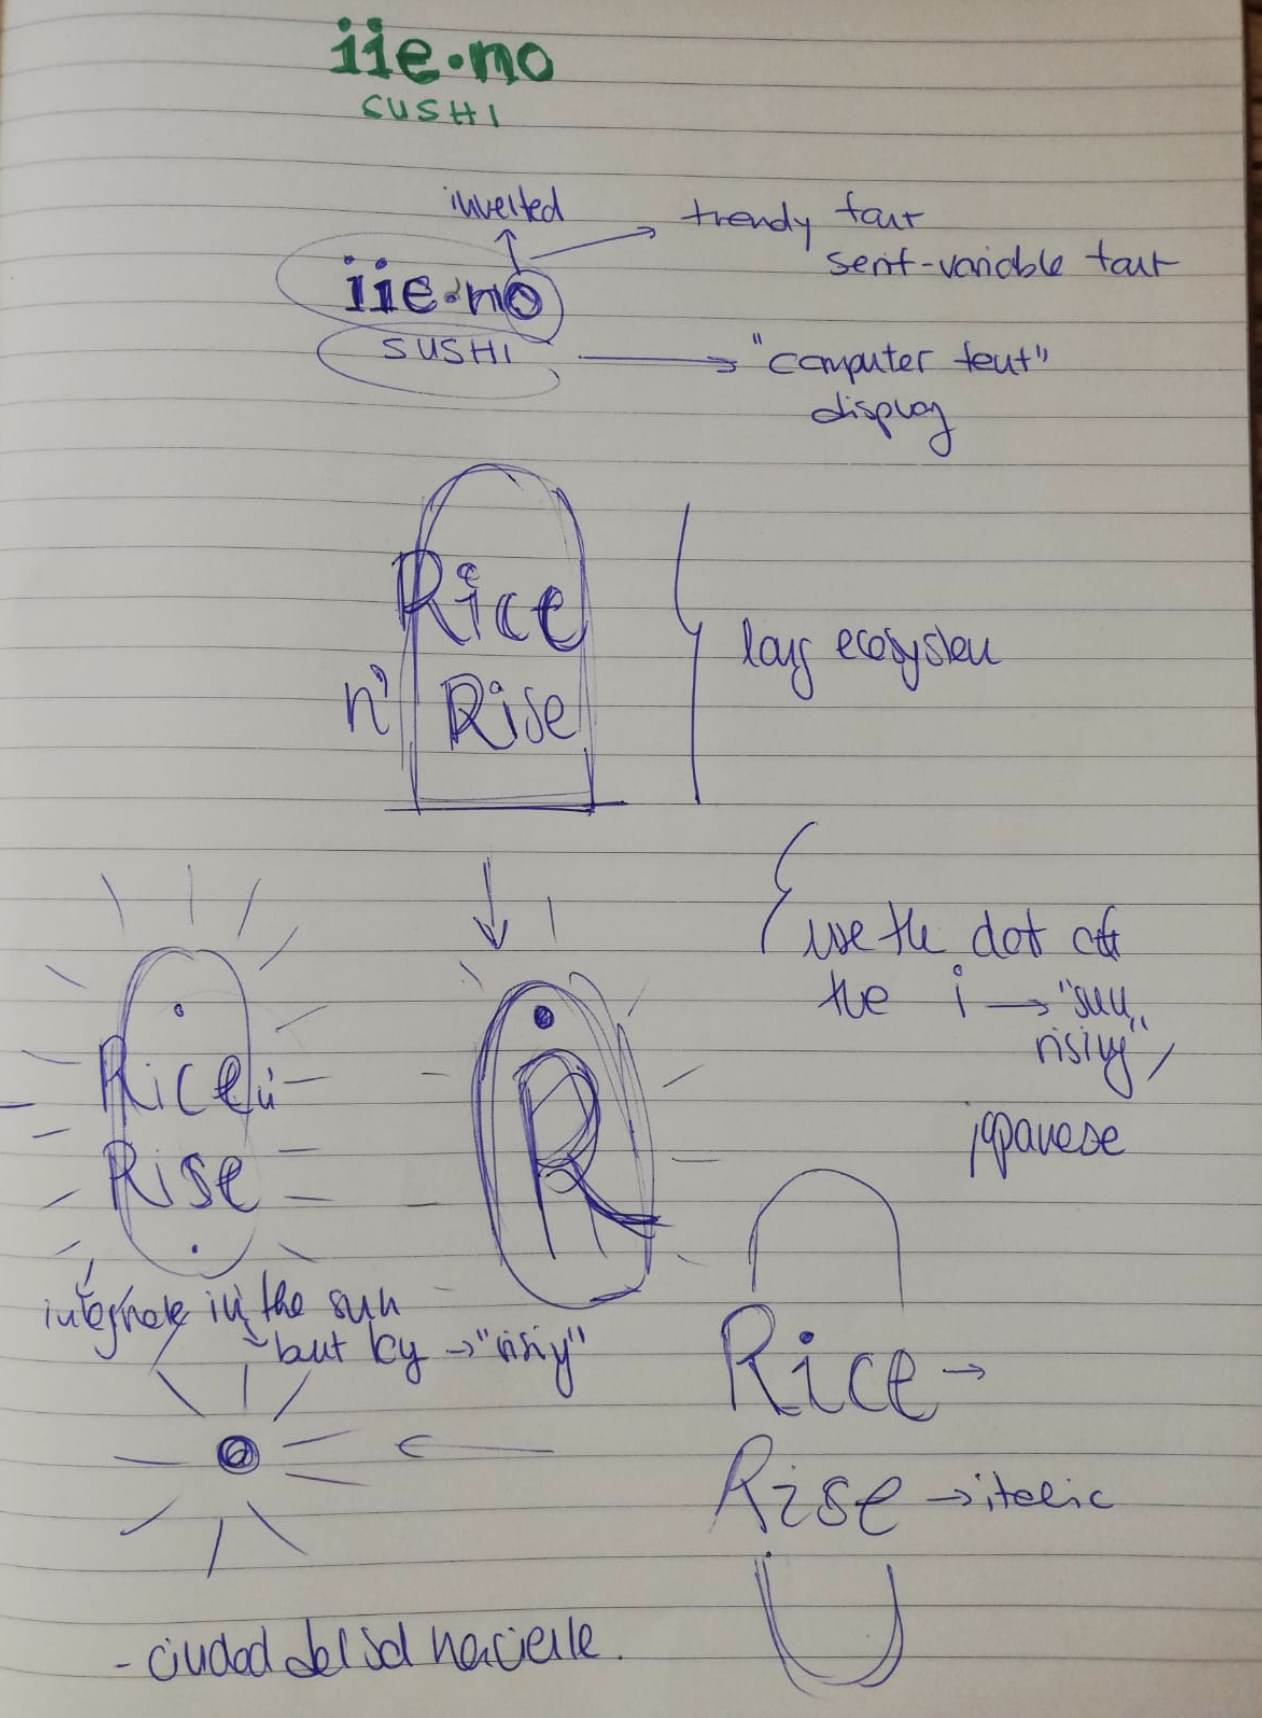 iie·no
SUSHI
inverted
trendy font
serif-variable font
iie·no
SUSHI
"computer font"
display
Rice
n' Rise
ecosystem
use the dot of
the i → "sun
rising"
japanese
Rice n'
Rise
R
integrate in the sun
but by → "rising"
Rice →
Rise → italic
- ciudad del sol naciente.